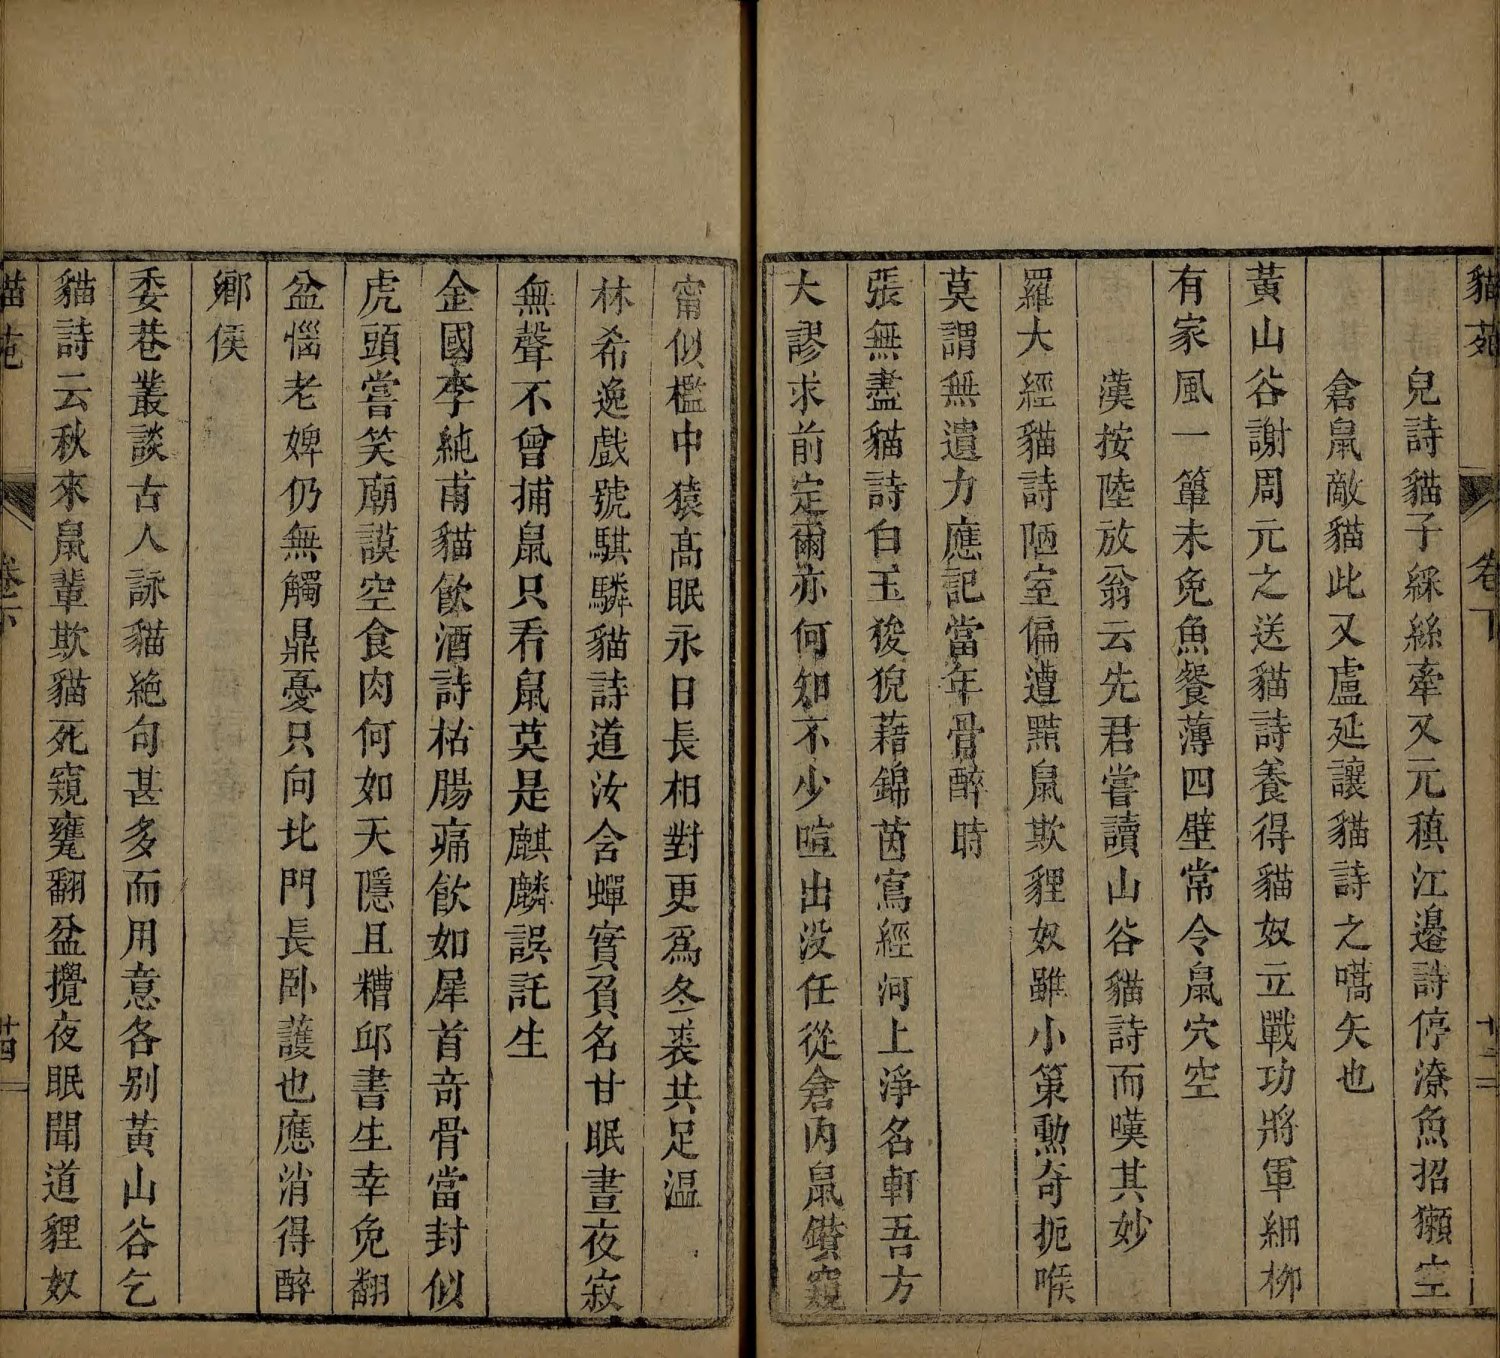 貓苑
卷下
十三
兒詩貓子綵絲牽又元稹江邊詩停潦魚招獺空
倉鼠敵貓此又盧延讓貓詩之嚆矢也
黃山谷謝周元之送貓詩養得貓奴立戰功將軍細柳
有家風一簞未免魚餐薄四壁常令鼠穴空
漢按陸放翁云先君嘗讀山谷貓詩而嘆其妙
羅大經貓詩陋室偏遭黠鼠欺貍奴雖小策勳奇扼喉
莫謂無遺力應記當年骨醉時
張無盡貓詩白玉狻猊藉錦茵寫經河上淨名軒吾方
大謬求前定爾亦何知不少喧出沒任從倉內鼠鑽窺
甯似檻中猿高眠永日長相對更爲冬裘共足温
林希逸戲號騏驎貓詩道汝含蟬實負名甘眠晝夜寂
無聲不曾捕鼠只看鼠莫是麒麟誤託生
金國李純甫貓飲酒詩枯腸痛飲如犀首奇骨當封似
虎頭嘗笑廟謨空食肉何如天隱且糟邱書生幸免翻
盆惱老婢仍無觸鼎憂只向北門長卧護也應消得醉
鄉侯
委巷叢談古人詠貓絶句甚多而用意各别黃山谷乞
貓詩云秋來鼠輩欺貓死窺甕翻盆攪夜眠聞道貍奴
貓苑
卷下